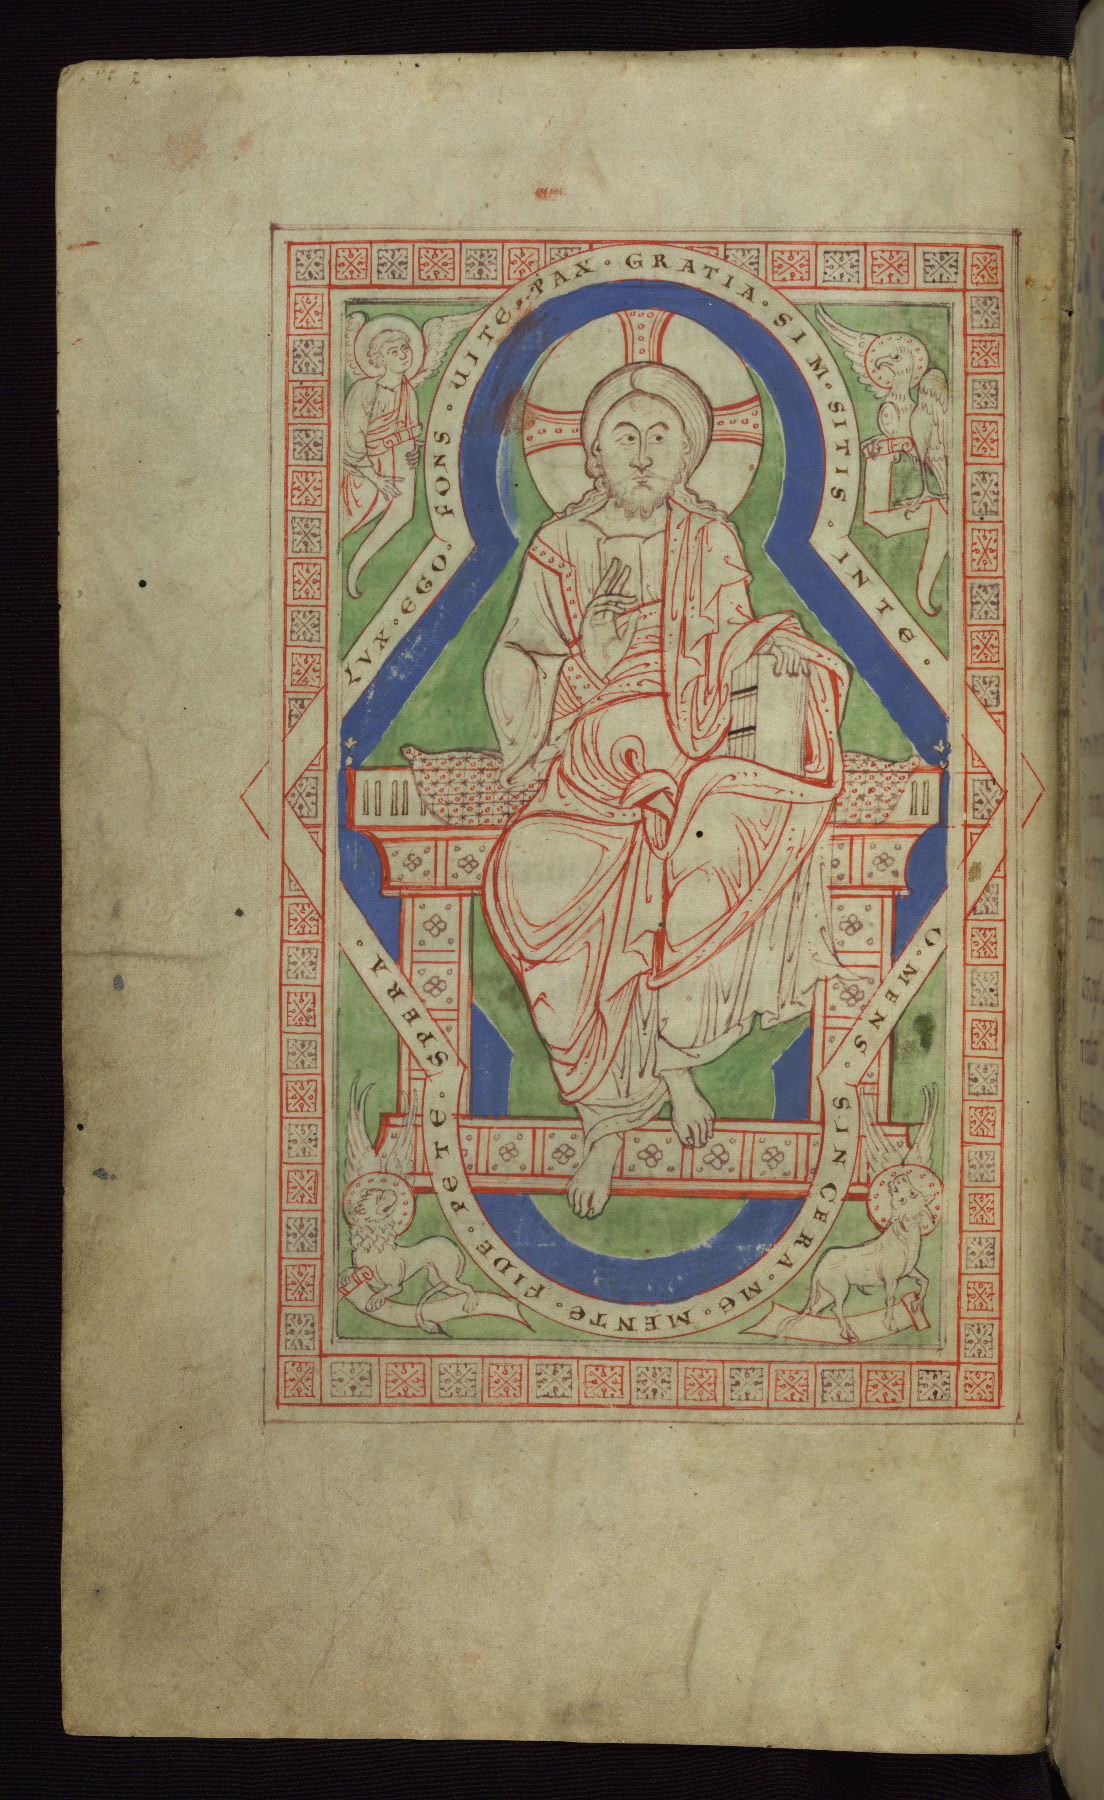 LVX · EGO · FONS · UITE · PAX · GRATIA · SIM · SITIS · INTE ·
O · MENS · SINCERA · ME · MENTE · FIDE · PETE · SPERA ·